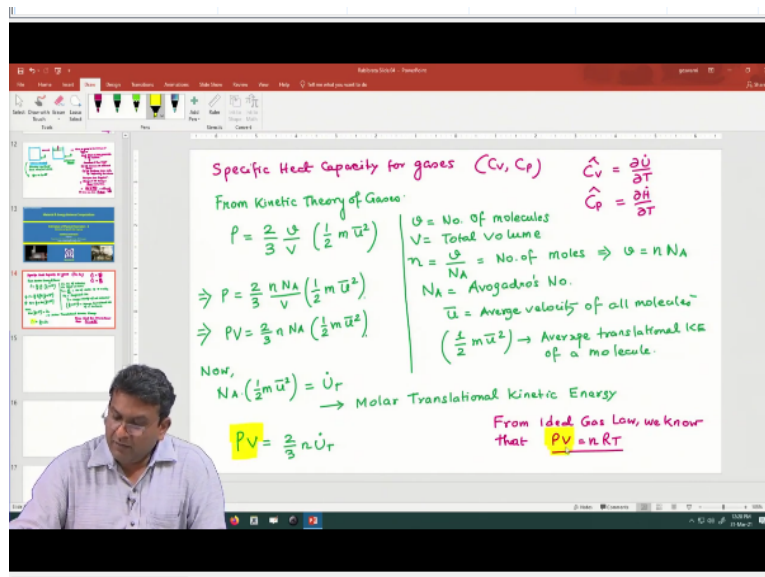 File Home Insert Draw Design Transitions Animations Slide Show Review View Help Tell me what you want to do
Select
Tools
Pens
Ruler
Convert
12
13
14
15
16
17
Specific Heat Capacity for gases (Cv, Cp)
Ĉv = ∂U̇/∂T
Ĉp = ∂Ḣ/∂T
From Kinetic Theory of Gases:
P = 2/3 ϑ/V (1/2 m ū²)
⇒ P = 2/3 n NA/V (1/2 m ū²)
⇒ PV = 2/3 n NA (1/2 m ū²)
ϑ = No. Of molecules
V = Total volume
n = ϑ/NA = No. of moles ⇒ ϑ = n NA
NA = Avogadro's No.
ū = Averge velocity of all molecules
(1/2 m ū²) → Average translational KE
of a molecule.
Now,
NA. (1/2 m ū²) = U̇T
→ Molar Translational Kinetic Energy
PV = 2/3 n U̇T
From Ideal Gas Law, we know
that PV = nRT